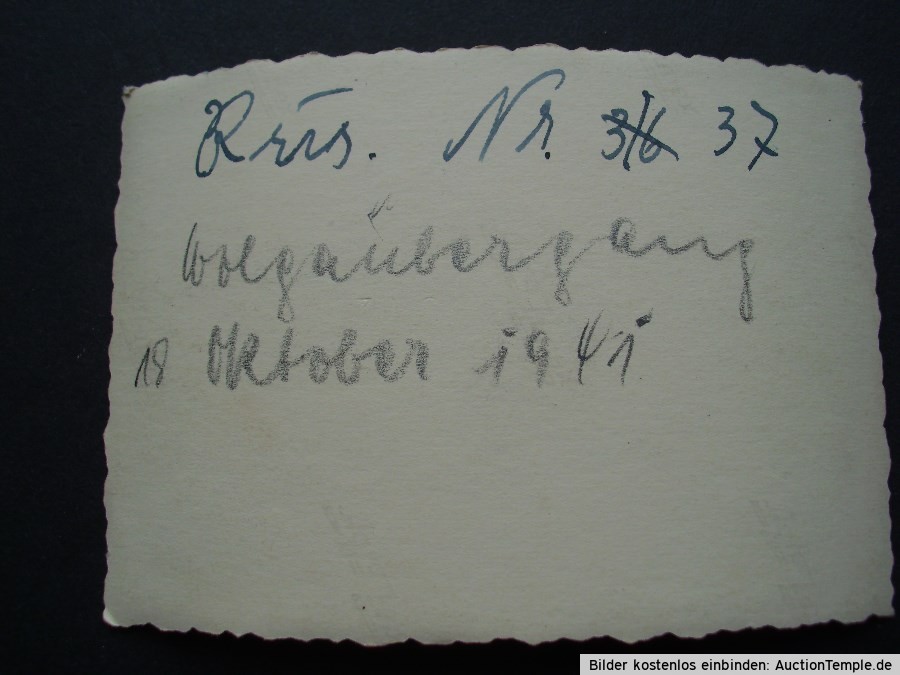 Russ. Nr. 36 37
Wolgaübergang
18 Oktober 1941
Bilder kostenlos einbinden: AuctionTemple.de